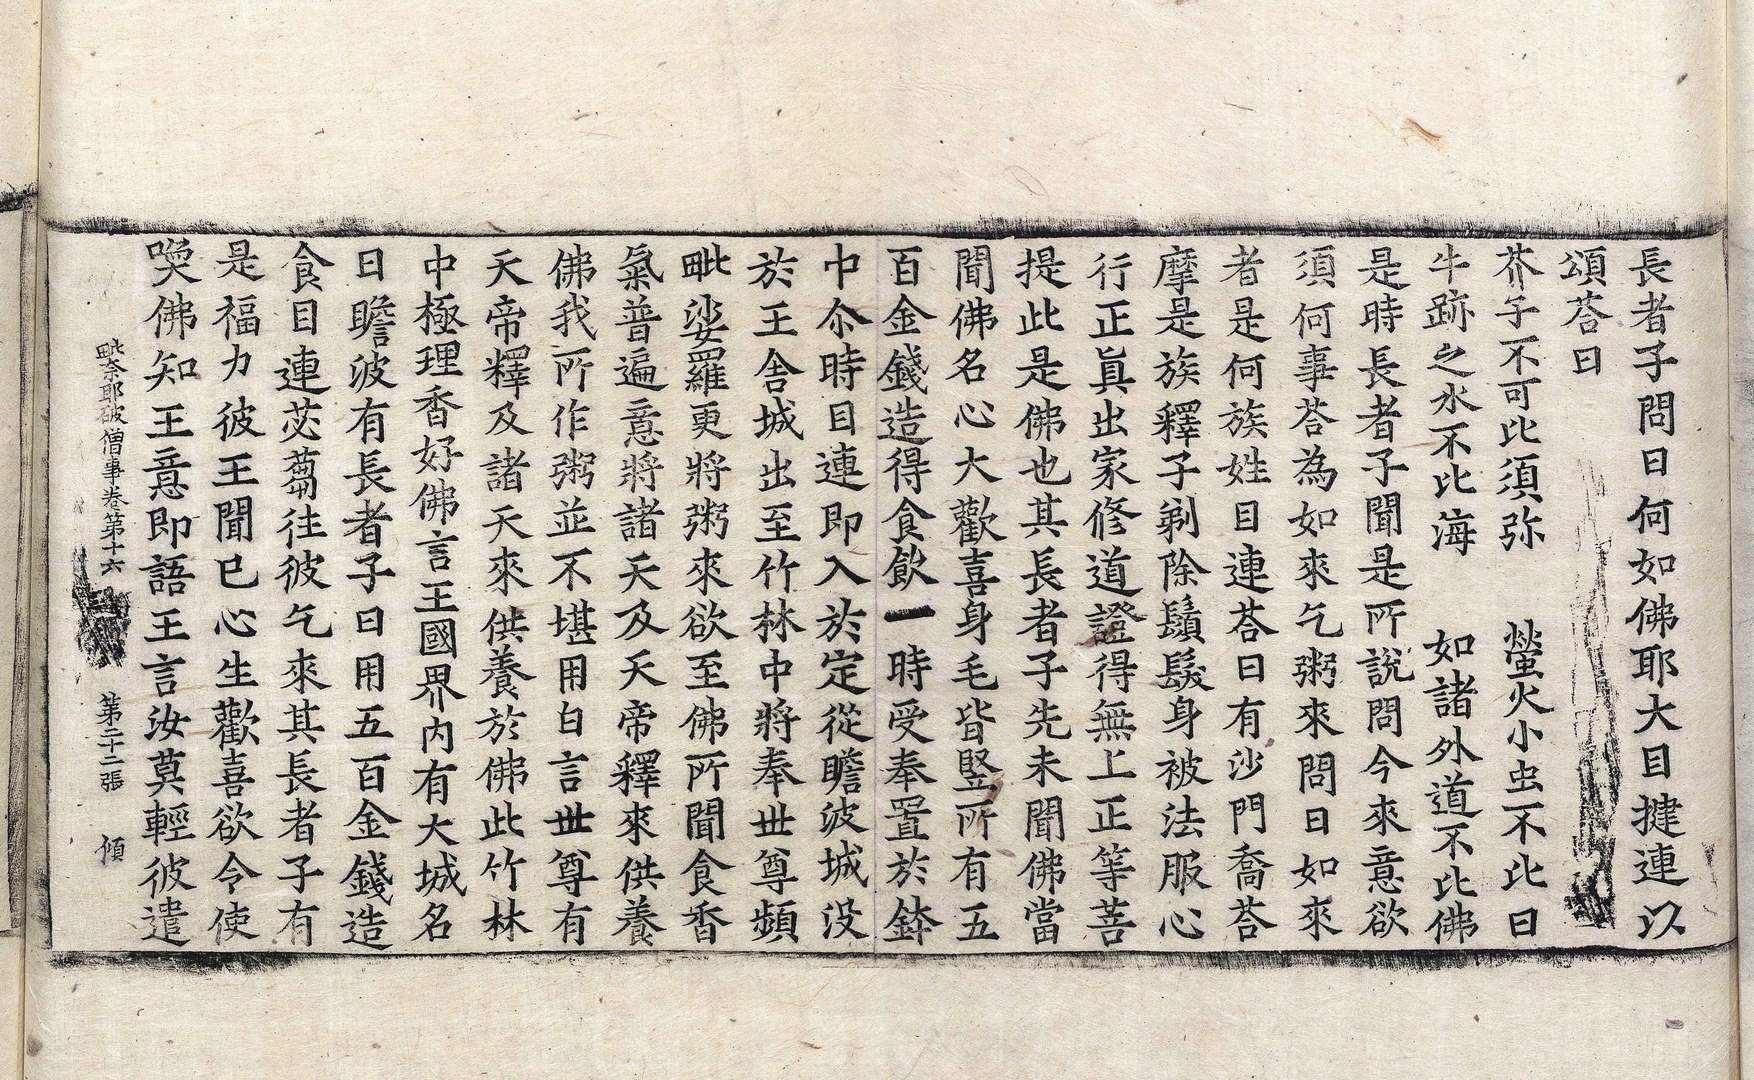 長者子問曰何如佛耶大目揵連以
頌荅曰
芥子不可比須弥　螢火小虫不比日
牛跡之水不比海　如諸外道不比佛
是時長者子聞是所說問今來意欲
須何事荅為如來乞粥來問曰如來
者是何族姓目連荅曰有沙門喬荅
摩是族釋子剃除鬚髮身被法服心
行正真出家修道證得無上正等菩
提此是佛也其長者子先未聞佛當
聞佛名心大歡喜身毛皆竪所有五
百金錢造得食飲一時受奉置於鉢
中尒時目連即入於定從瞻波城没
於王舍城出至竹林中將奉世尊頻
毗娑羅更將粥來欲至佛所聞食香
氣普遍意將諸天及天帝釋來供養
佛我所作粥並不堪用白言世尊有
天帝釋及諸天來供養於佛此竹林
中極理香好佛言王國界内有大城名
曰瞻波有長者子曰用五百金錢造
食目連苾蒭往彼乞來其長者子有
是福力彼王聞已心生歡喜欲令使
喚佛知王意即語王言汝莫輕彼遣
毗奈耶破僧事卷第十六　第二十二張　傾